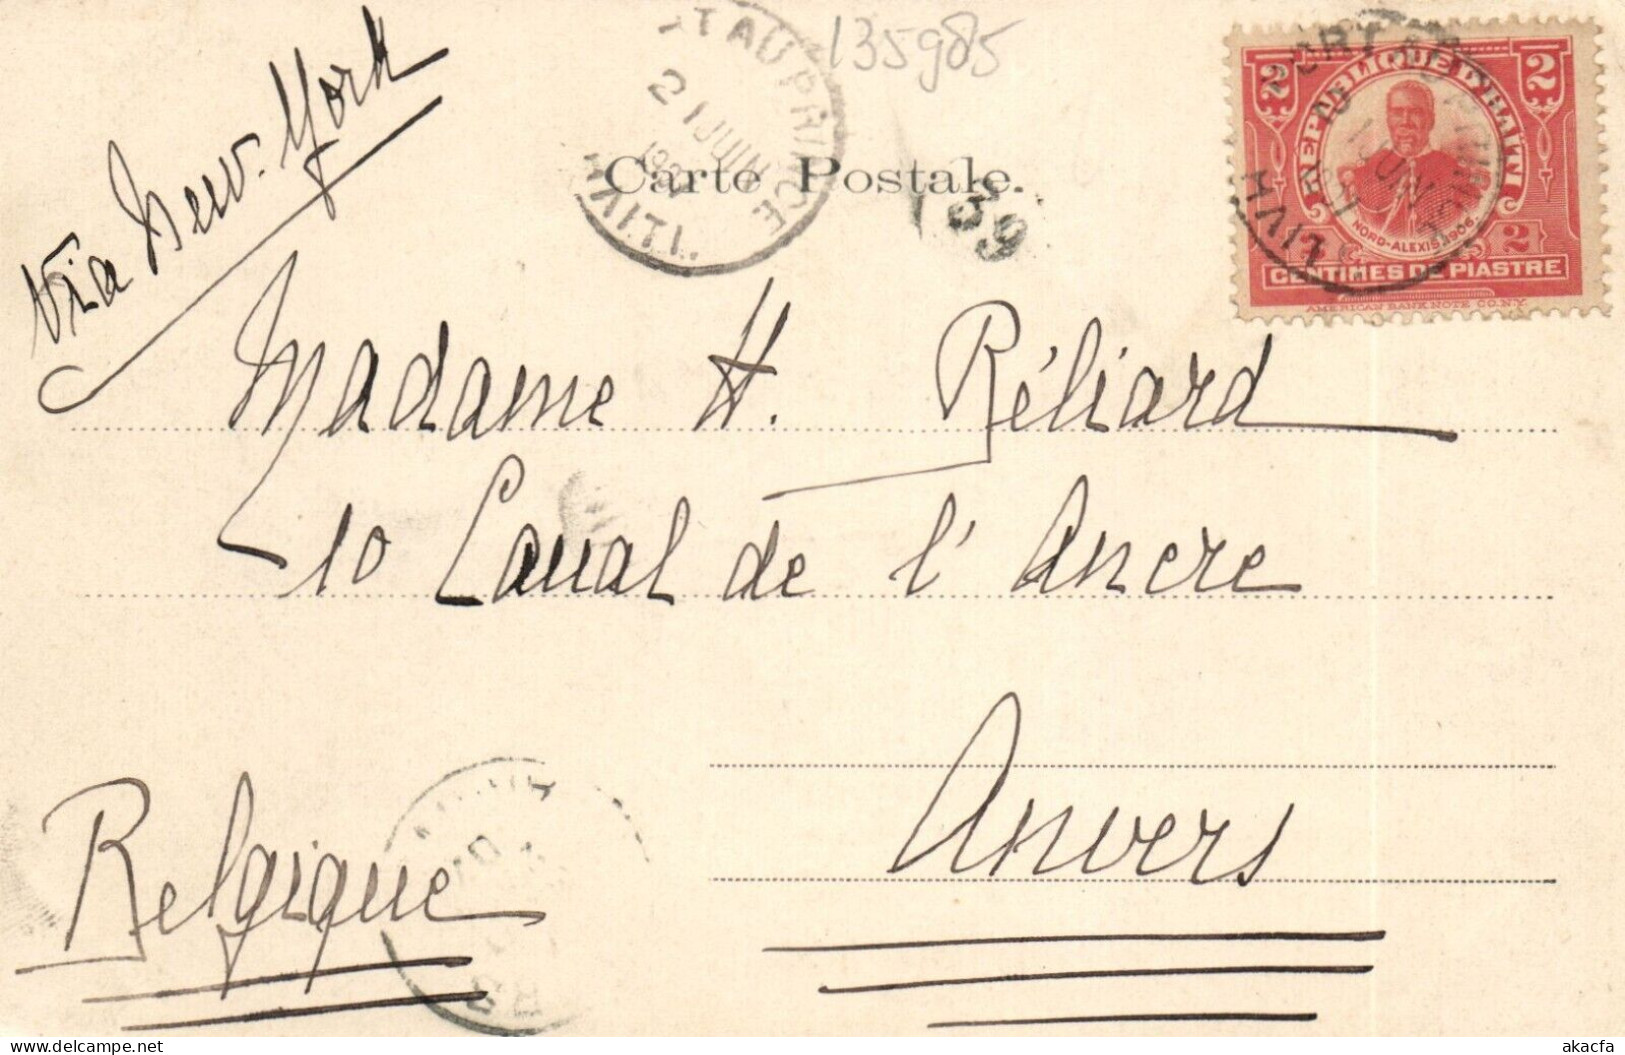 135985
Via New-York
T AU PRINCE
21 JUIN
HAITI
Carte Postale.
39
2 2
REPUBLIQUE D'HAITI
NORD-ALEXIS 1906.
2 2
CENTIMES DE PIASTRE
AMERICAN BANK NOTE CO. N.Y.
PORT AU PRINCE
JUIN
HAITI
Madame H. Réliard
10 Canal de l'Ancre
Anvers
Belgique
akacfa